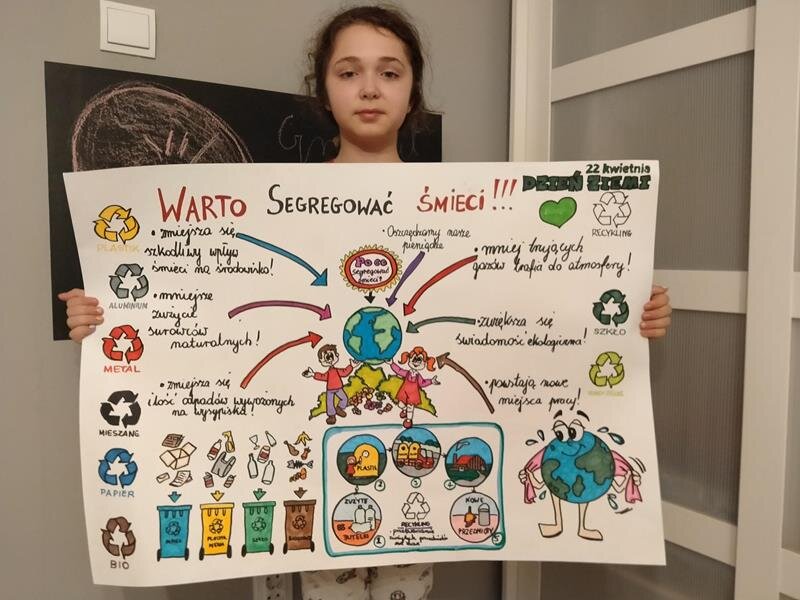 22 kwietnia
DZIEŃ ZIEMI
WARTO SEGREGOWAĆ ŚMIECI!!!
PLASTIK
• zmiejsza się
szkodliwy wpływ
śmieci na środowisko!
• Oszczędzamy nasze
pieniądze
RECYKLING
Po co
segregować
śmieci?
• mniej trujących
gazów trafia do atmosfery!
ALUMINIUM
• mniejsze
zużycie
surowców
naturalnych!
SZKŁO
• zwiększa się
świadomość ekologiczna!
METAL
• zmiejsza się
ilość odpadów wywożonych
na wysypiska!
• powstają nowe
miejsca pracy!
MIESZANE
PAPIER
BIO
PAPIER
PLASTIK
METAL
SZKŁO
PLASTIK
2
3
4
ZUŻYTE
BUTELKI
1
RECYKLING
NOWE
PRZEDMIOTY
5